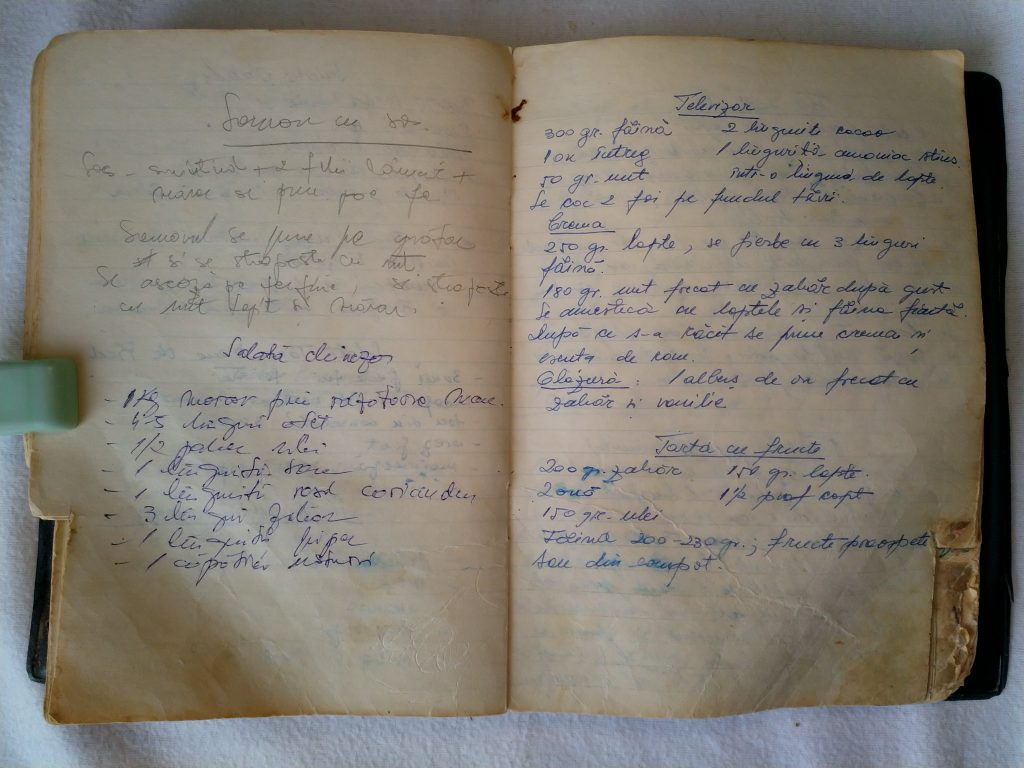 Somon cu sos.
Sos - smântână + 2 felii lămâie +
mărar se pune pe foc
Somonul se pune pe grătar
și se stropește cu unt.
Se așează pe farfurie, se stropește
cu unt topit și mărar.
Salată chinezo
- 1 kg morcov prin răzătoare mare.
- 4-5 linguri oțet
- 1/2 pahar ulei
- 1 linguriță sare
- 1 linguriță rasă coriandru
- 3 linguri zahăr
- 1 linguriță piper
- 1 căpățână usturoi
Televizor
300 gr. făină 2 lingurite cacao
1 ou întreg 1 linguriță amoniac stins
50 gr. unt într-o lingură de lapte.
Se coc 2 foi pe fundul tăvii.
Crema
250 gr. lapte, se fierbe cu 3 linguri
făină.
180 gr. unt frecat cu zahăr după gust
Se amestică cu laptele si făina fiartă.
După ce s-a răcit se pune crema și
esența de rom.
Glazură: 1 albuș de ou frecat cu
zahăr și vanilie
Tarta cu fructe
200 gr. zahăr 150 gr. lapte.
2 ouă 1 1/2 praf copt
150 gr. ulei
Făina 200-230 gr.; fructe proaspete
sau din compot.